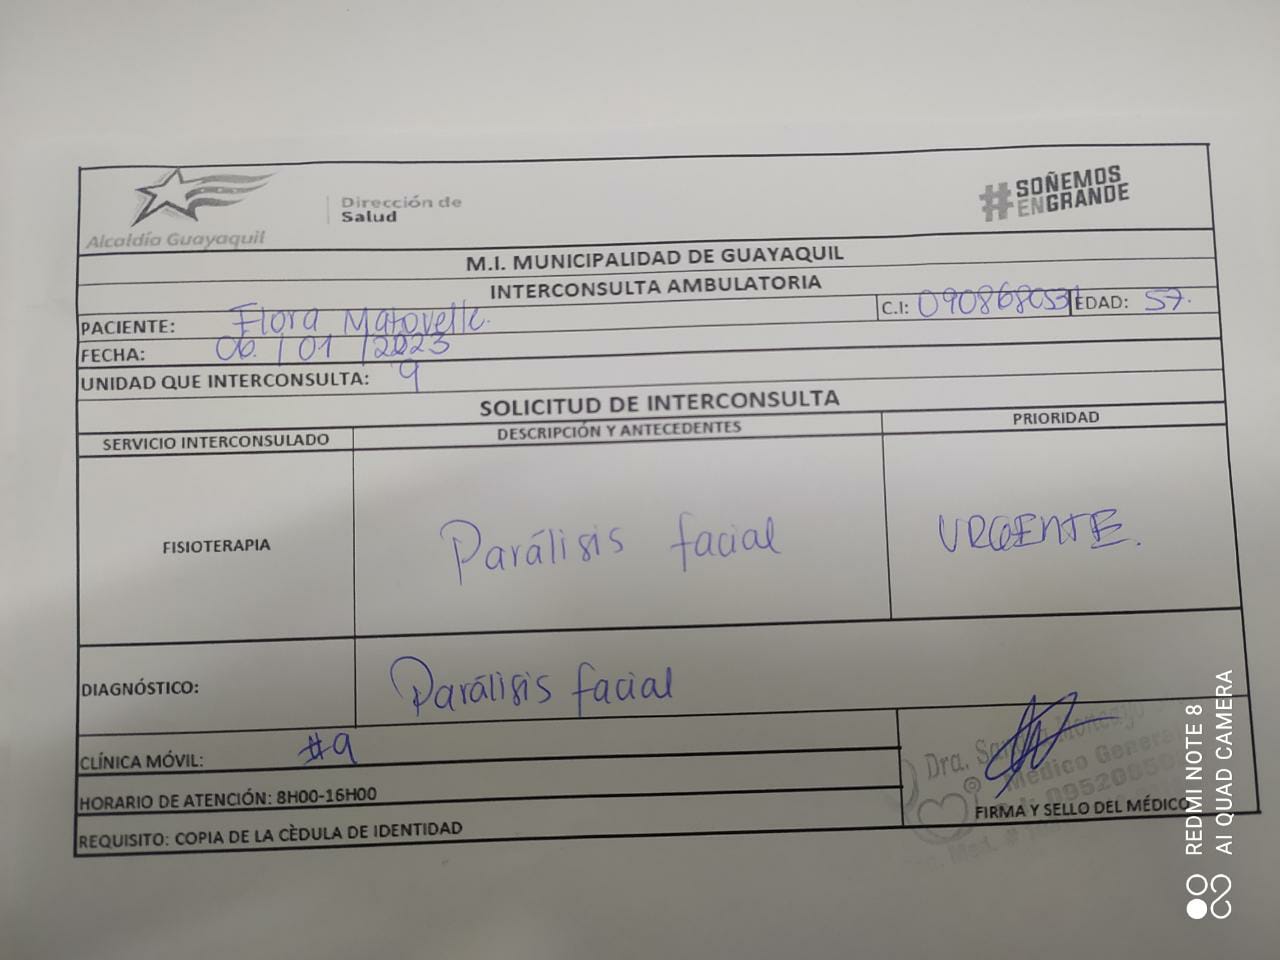 Alcaldía Guayaquil
Dirección de
Salud
#SOÑEMOS
ENGRANDE
M.I. MUNICIPALIDAD DE GUAYAQUIL
INTERCONSULTA AMBULATORIA
PACIENTE: Flora Matovelle. C.I: 0908680531 EDAD: 57.
FECHA: 06 / 01 / 2023
UNIDAD QUE INTERCONSULTA: 9
SOLICITUD DE INTERCONSULTA
SERVICIO INTERCONSULADO DESCRIPCIÓN Y ANTECEDENTES PRIORIDAD
FISIOTERAPIA Parálisis facial URGENTE.
DIAGNÓSTICO: Parálisis facial
CLÍNICA MÓVIL: #9
HORARIO DE ATENCIÓN: 8H00-16H00
REQUISITO: COPIA DE LA CÈDULA DE IDENTIDAD
Dra.
Médico General
FIRMA Y SELLO DEL MÉDICO
REDMI NOTE 8
AI QUAD CAMERA